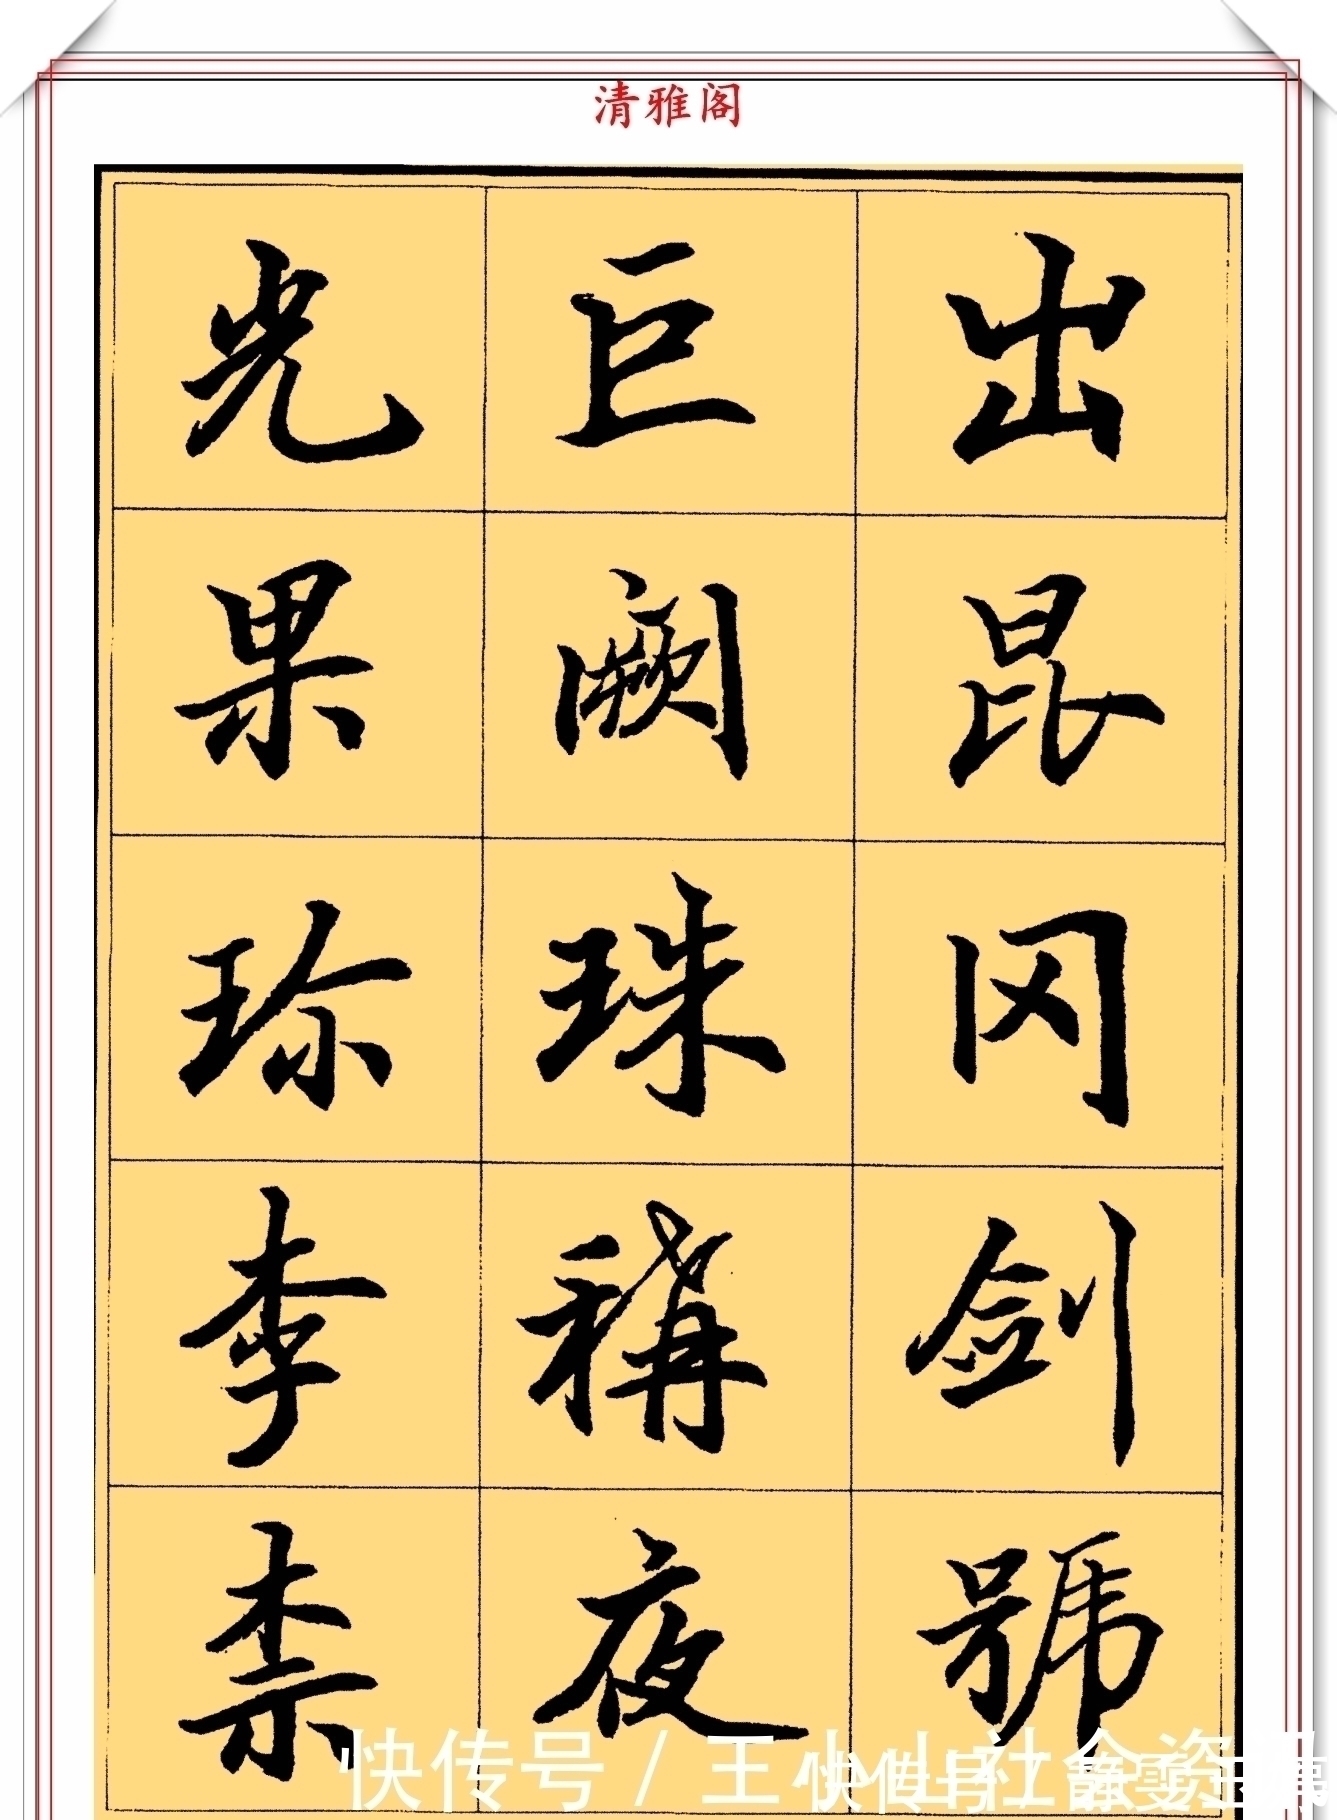 清雅阁
出昆冈剑號
巨阙珠稱夜
光果珍李柰
快传号 /
快传号 /